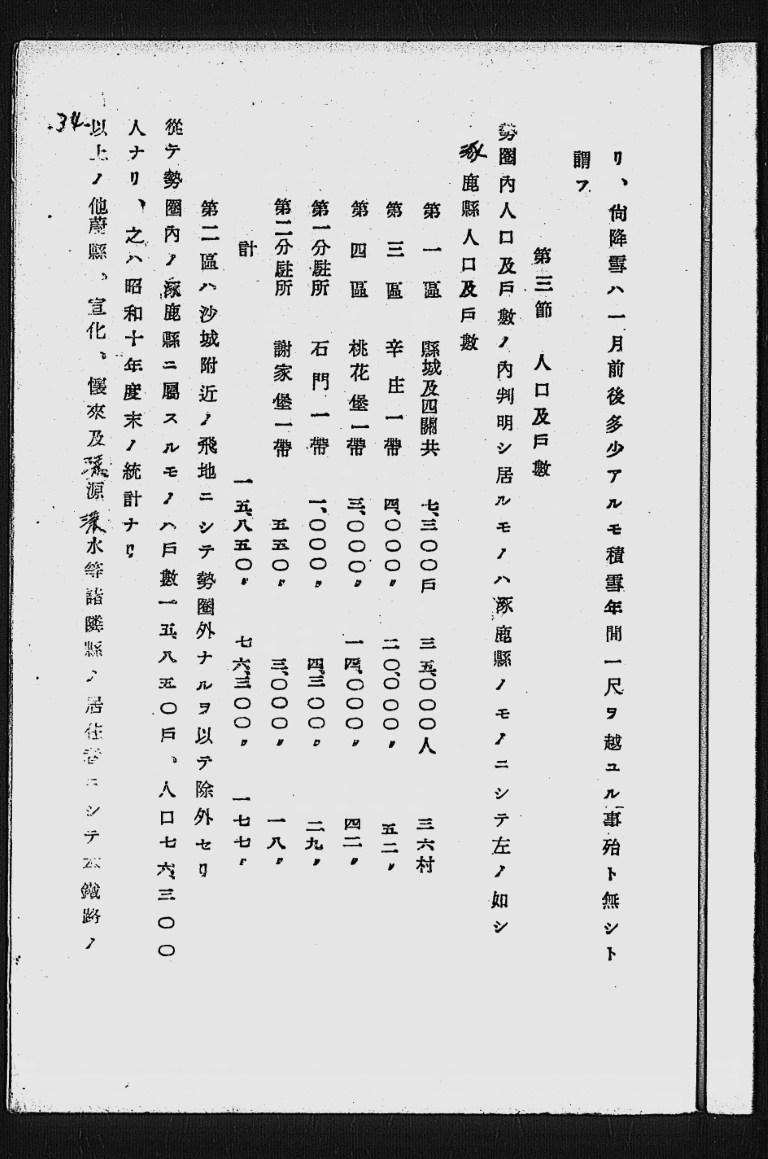 リ、尙降雪ハ一月前後多少アルモ積雪年間一尺ヲ越ユル事殆ト無シト
謂フ
第三節 人口及戸數
勢圈內人口及戸數ノ內判明シ居ルモノハ涿鹿縣ノモノニシテ左ノ如シ
涿鹿縣人口及戸數
第一區 縣城及四關共 七、三〇〇戸 三五、〇〇〇人 三六村
第三區 辛庄一帶 四、〇〇〇〃 二〇、〇〇〇〃 五二〃
第四區 桃花堡一帶 三、〇〇〇〃 一四、〇〇〇〃 四二〃
第一分駐所 石門一帶 一、〇〇〇〃 四、三〇〇〃 二九〃
第二分駐所 謝家堡一帶 五五〇〃 三、〇〇〇〃 一八〃
計 一五、八五〇〃 七六、三〇〇〃 一七七〃
第二區ハ沙城附近ノ飛地ニシテ勢圈外ナルヲ以テ除外セリ
從テ勢圈內ノ涿鹿縣ニ屬スルモノハ戸數一五、八五〇戸、人口七六、三〇〇
人ナリ、之ハ昭和十年度末ノ統計ナリ
以上ノ他蔚縣、宣化、懷來及源水等諸隣縣ノ居住者ニシテ本鐵路ノ
34